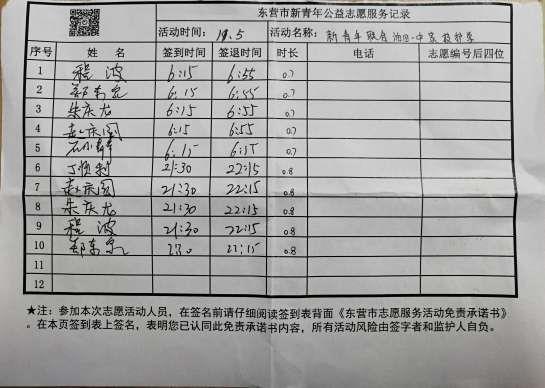 东营市新青年公益志愿服务记录
活动时间：11.5 活动名称：新青年联合
序号 姓 名 签到时间 签退时间 时长 电话 志愿编号后四位
1 程波 6:15 6:55 0.7
2 郑东 6:15 6:55 0.7
3 朱庆龙 6:15 6:55 0.7
4 赵庆国 6:15 6:55 0.7
5 6:15 0.7
6 丁顺利 21:30 22:15 0.8
7 赵庆国 21:30 22:15 0.8
8 朱庆龙 21:30 22:15 0.8
9 程波 21:30 22:15 0.8
10 郑东 22:15 0.8
11
12
★注：参加本次志愿活动人员，在签名前请仔细阅读签到表背面《东营市志愿服务活动免责承诺书》
。在本页签到表上签名，表明您已认同此免责承诺书内容，所有活动风险由签字者和监护人自负。